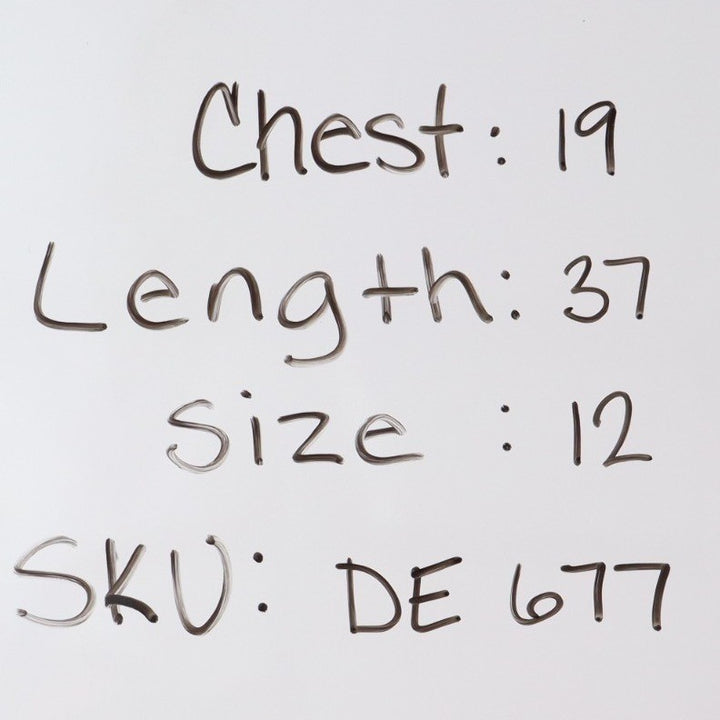 Chest: 19
Length: 37
Size : 12
SKU: DE 677